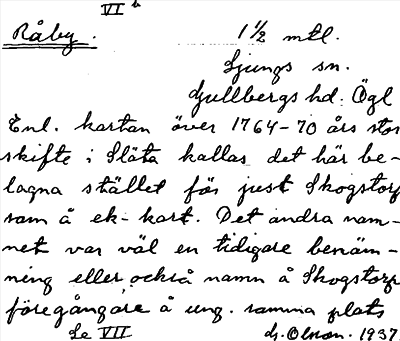 VI b
Råby. 1 1/2 mtl.
Ljungs sn.
Gullbergs hd. Ögl
Enl. kartan över 1764-70 års stor
skifte i Släta kallas det här be-
lagna stället för just Skogstorp
som å ek-kart. Det andra nam-
net var väl en tidigare benäm-
ning eller också namn å Skogstorp
föregångare å ung. samma plats
Se VII G. Olson. 1937.